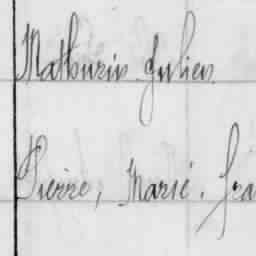 Mathurin Julien
Pierre, Marie.